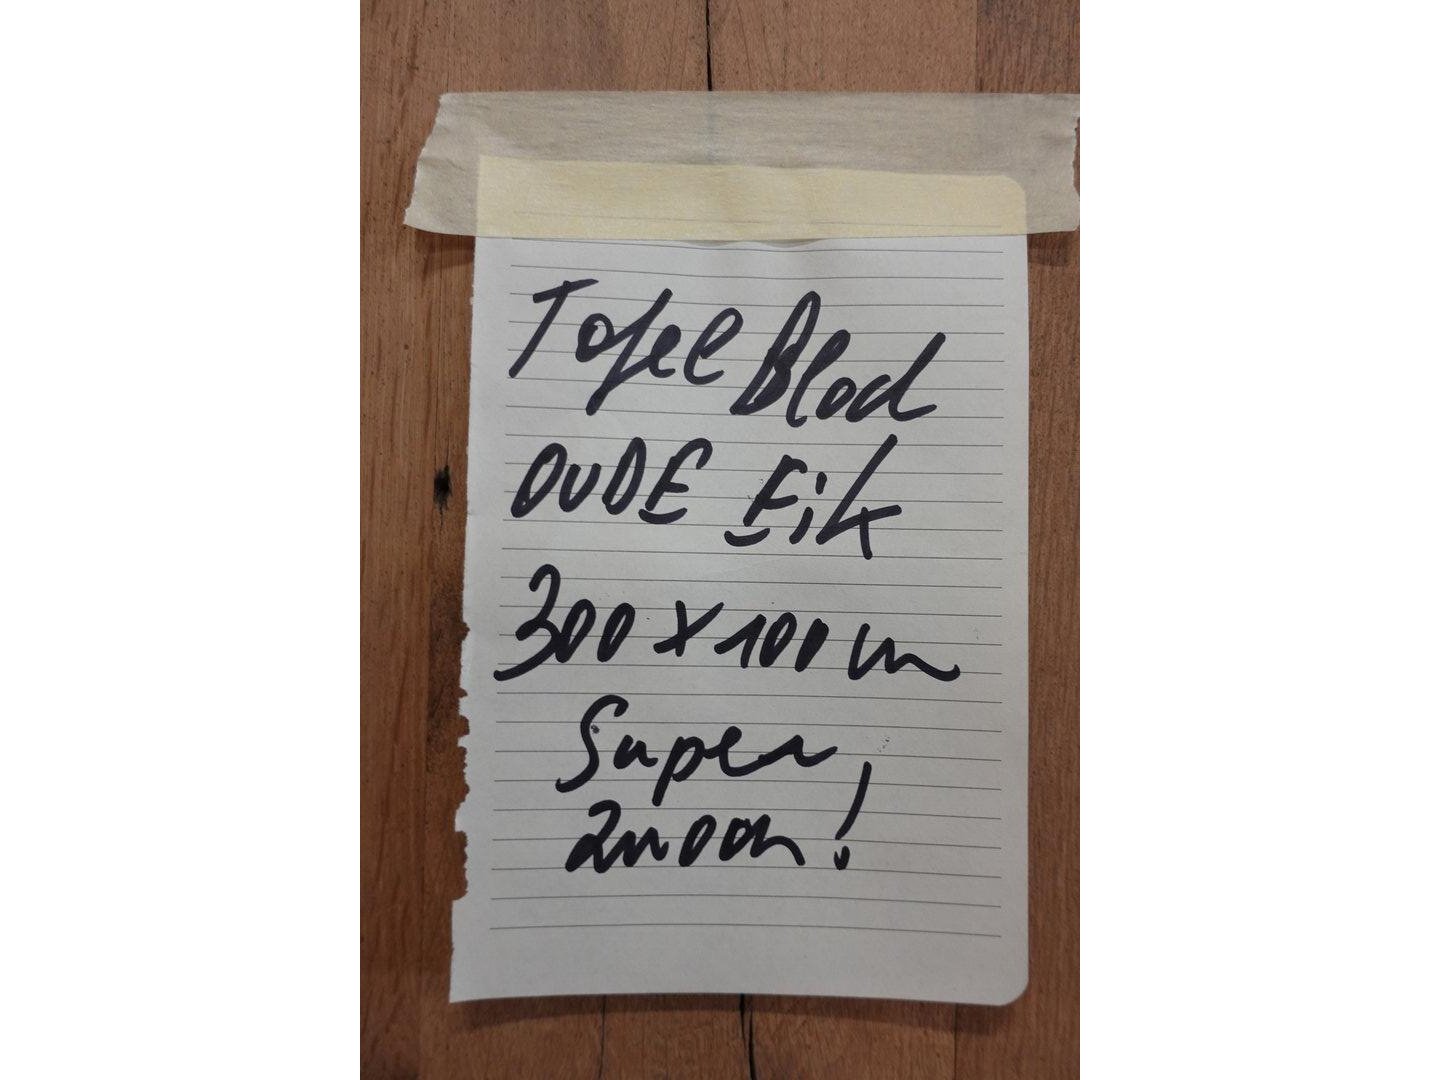 Tafel Blad
OUDE Eik
300 x 100 cm
Super
zwaar!